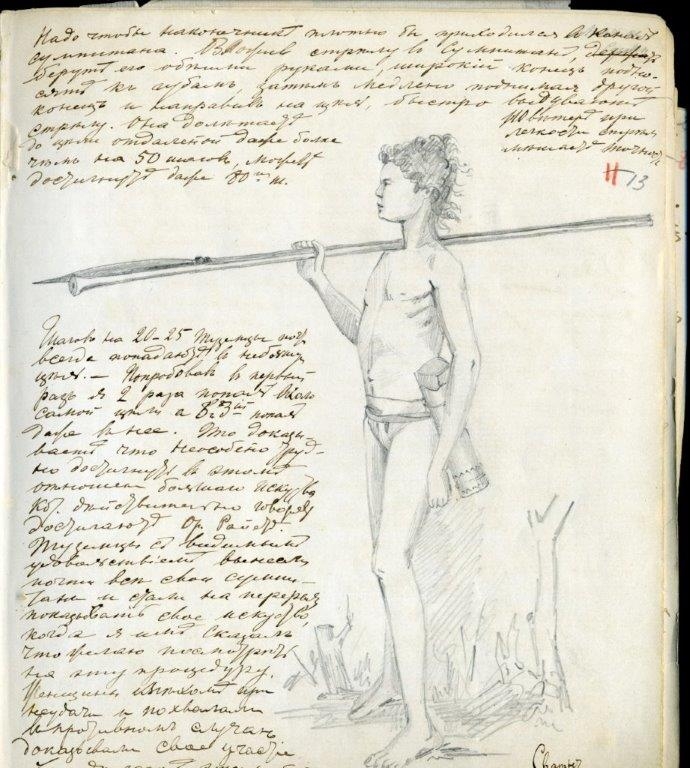 Надо чтобы наконечникъ плотно бы приходился к
сумпитана. Вложив стрѣлу въ сумпитан,
берутъ его обѣими руками, широкій конецъ подно-
сятъ къ губамъ, затѣмъ медлено поднимая другой
конецъ и направивъ на цѣль, быстро выдуваютъ
стрѣлу. Она долѣтаетъ
до цѣли отдаленой даже болѣе
чѣмъ на 50 шаговъ, можетъ
достигнуть даже 80
при
легкости стрѣлы
мѣшаетъ
H 13
Шаговъ на 20-25 туземцы поч
всегда попадаютъ в неболшу
цѣль. — Попробовав в первый
разъ я 2 раза попалъ около
самой цѣли а въ 3ій попал
даже в нее. Это доказы-
ваетъ что неособено труд-
но достигнуть в этомъ
отношеніи болшаго искуства
кот. дѣйствительно говорятъ
достигаютъ Ор. Райет.
Туземцы съ видимымъ
удоволствіемъ вынесли
почти всѣ свои сумпи-
таны и стали на перерыв
показывать свое искуство,
когда я имъ сказалъ,
что желаю посмотрѣть
на эту процедуру.
Женщины при
неудачи и похвалами
в противномъ случаѣ
доказывали свое участіе